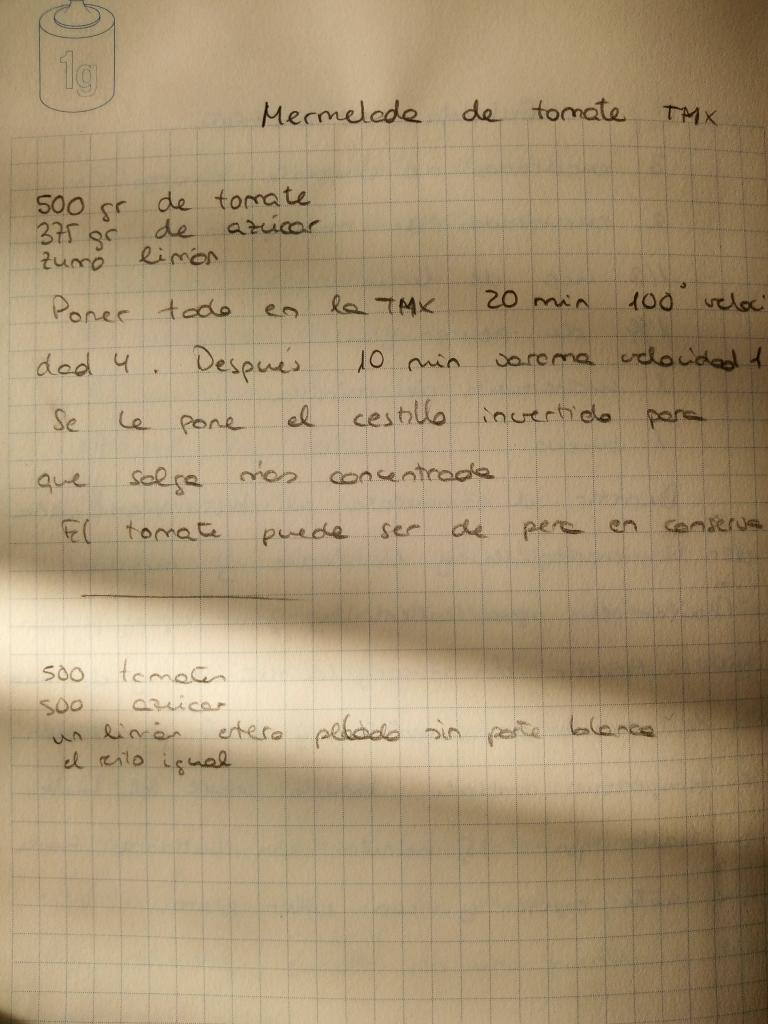 1g
Mermelada de tomate TMX
500 gr de tomate
375 gr de azúcar
zumo limón
Poner todo en la TMX 20 min 100° veloci
dad 4. Después 10 min varoma velocidad 1
Se le pone el cestillo invertido para
que salga más concentrada
El tomate puede ser de pera en conserva
500 tomates
500 azúcar
un limón entero pelado sin parte blanca
el resto igual